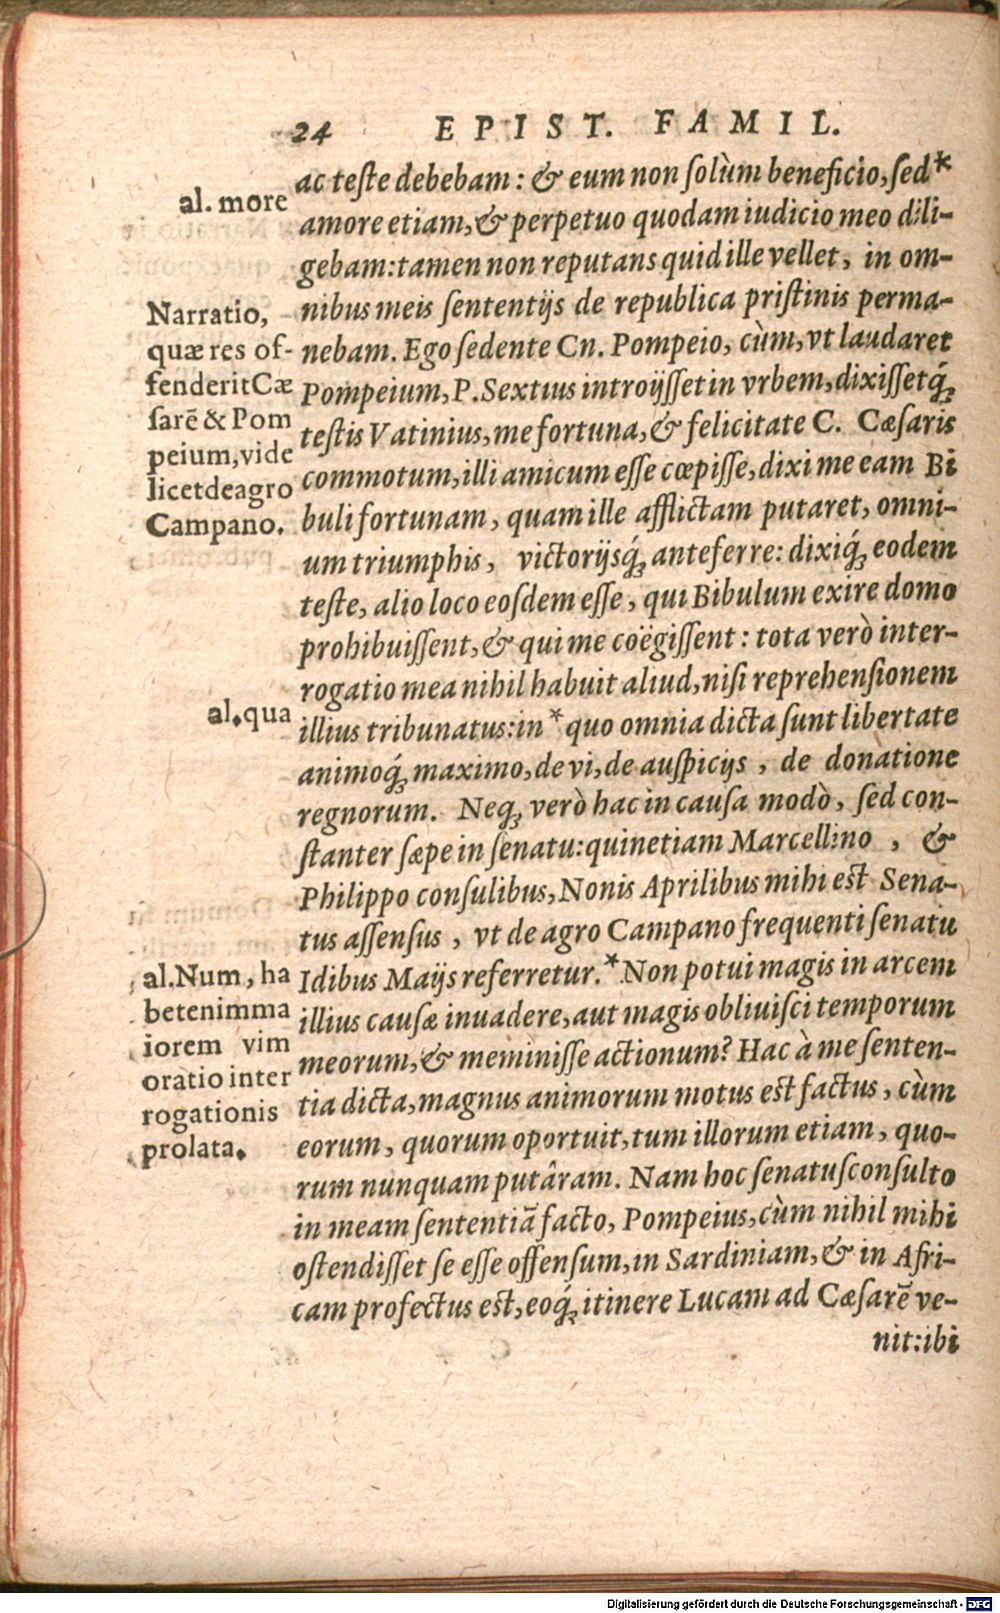 24 EPIST. FAMIL.
al. more
Narratio,
quæ res of-
fenderit Cæ
sarē & Pom
peium, vide
licet de agro
Campano.
al. qua
al. Num, ha
bet enim ma
iorem vim
oratio inter
rogationis
prolata.
ac teste debebam: & eum non solùm beneficio, sed*
amore etiam, & perpetuo quodam iudicio meo dili-
gebam: tamen non reputans quid ille vellet, in om-
nibus meis sententijs de republica pristinis perma-
nebam. Ego sedente Cn. Pompeio, cùm, vt laudaret
Pompeium, P. Sextius introijsset in vrbem, dixissetq́;
testis Vatinius, me fortuna, & felicitate C. Cæsaris
commotum, illi amicum esse cœpisse, dixi me eam Bi
buli fortunam, quam ille afflictam putaret, omni-
um triumphis, victorijsq́; anteferre: dixiq́; eodem
teste, alio loco eosdem esse, qui Bibulum exire domo
prohibuissent, & qui me coëgissent: tota verò inter-
rogatio mea nihil habuit aliud, nisi reprehensionem
illius tribunatus: in *quo omnia dicta sunt libertate
animoq́; maximo, de vi, de auspicijs, de donatione
regnorum. Neq; verò hac in causa modò, sed con-
stanter sæpe in senatu: quinetiam Marcellino, &
Philippo consulibus, Nonis Aprilibus mihi est Sena-
tus assensus, vt de agro Campano frequenti senatu
Idibus Maijs referretur.* Non potui magis in arcem
illius causæ inuadere, aut magis obliuisci temporum
meorum, & meminisse actionum? Hac à me senten-
tia dicta, magnus animorum motus est factus, cùm
eorum, quorum oportuit, tum illorum etiam, quo-
rum nunquam putâram. Nam hoc senatusconsulto
in meam sententiā facto, Pompeius, cùm nihil mihi
ostendisset se esse offensum, in Sardiniam, & in Afri-
cam profectus est, eoq́; itinere Lucam ad Cæsarē ve-
nit: ibi
Digitalisierung gefördert durch die Deutsche Forschungsgemeinschaft - DFG